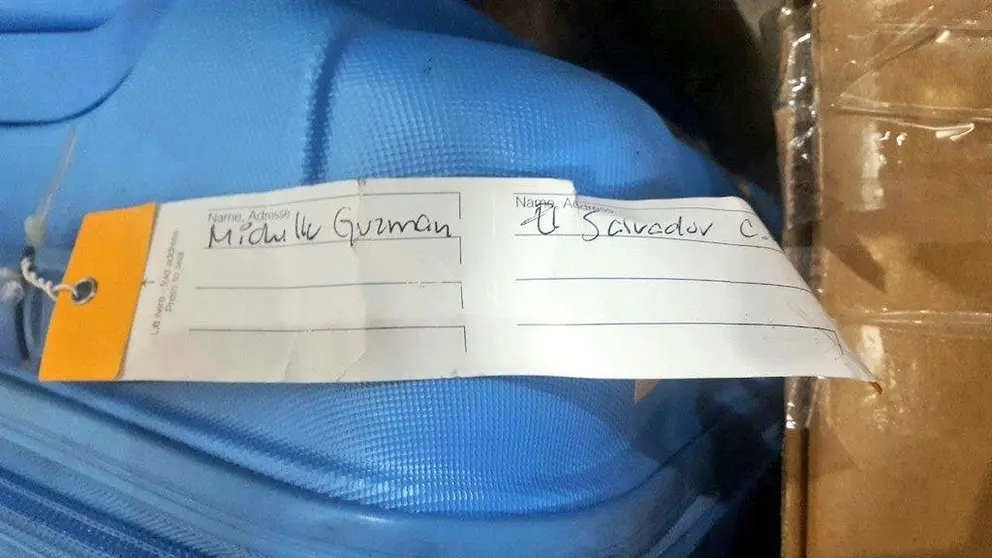 Name, Adresse
Michelle Guzman
Lift here, fold address
Press to seal
Name, Adresse
El Salvador C.